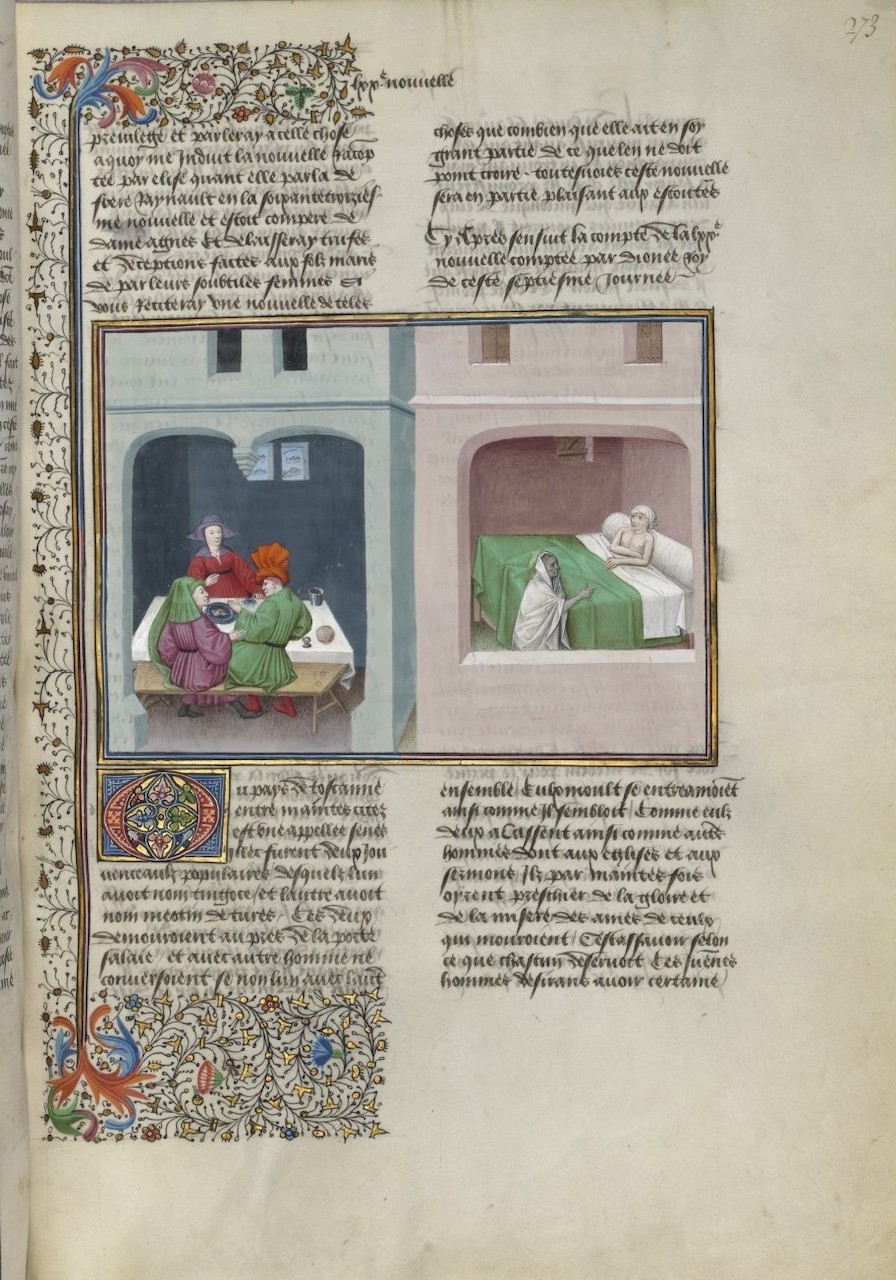 273
lxx.e nouvelle
previlege et parleray a celle chose
a quoy me Induit la nouvelle racop
tee par elise quant elle parla de
frere Raynault en la soixantetreizies
me nouvelle et estoit compere de
dame agnes Et delaisseray trufes
et decepcions faictes aux folz maris
de par leurs soubtiles femmes Si
vous Reciteray une nouvelle de teles
choses que combien que elle ait en soy
grant partie de ce que len ne doit
point croire toutesvoies ceste nouvelle
sera en partie plaisant aux escoutes
Cy Apres sensuit la compte de la lxx.e
nouvelle comptee par dionee Roy
de ceste septiesme Journee
Ou pays de toscanne
entre maintes citez
est une appellee senes
furent deux Jou
venceaulx populaires desquelz lun
avoit nom tingoce et lautre avoit
nom meotin de tures Ces deux
demouroient au pres de la porte
salaie et avec autre homme ne
conversoient se non lun avec lautre
ensemble / Eulx moult se entreamoiet
ainsi comme Il sembloit / Comme eulx
deux alassent ainsi comme autres
hommes dont aux eglises et aux
sermons Ilz par maintes fois
oyrent preschier de la gloire et
de la misere des ames de ceulx
qui mouroient / Cestassavoir selon
ce que chascun deservoit Ces Juenes
hommes desirans avoir certaine